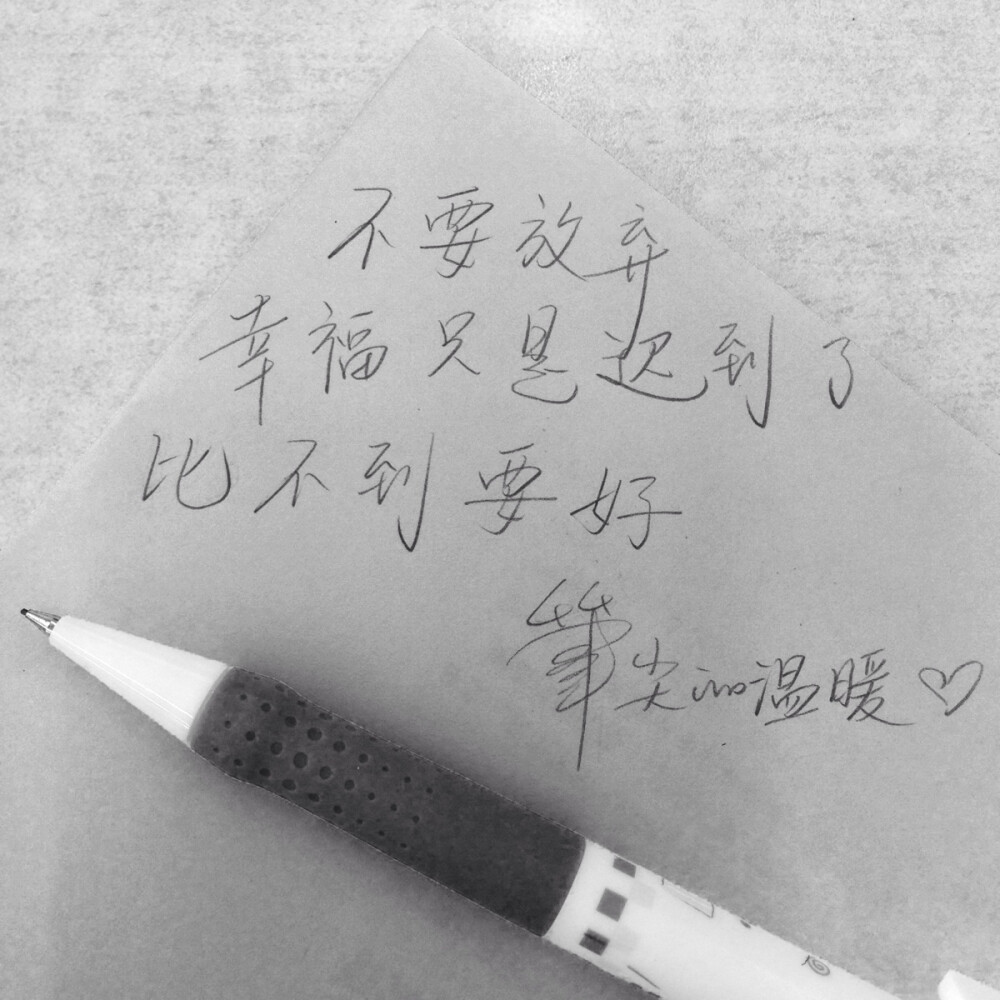 不要放弃
幸福只是迟到了
比不到要好
筆尖的温暖♡